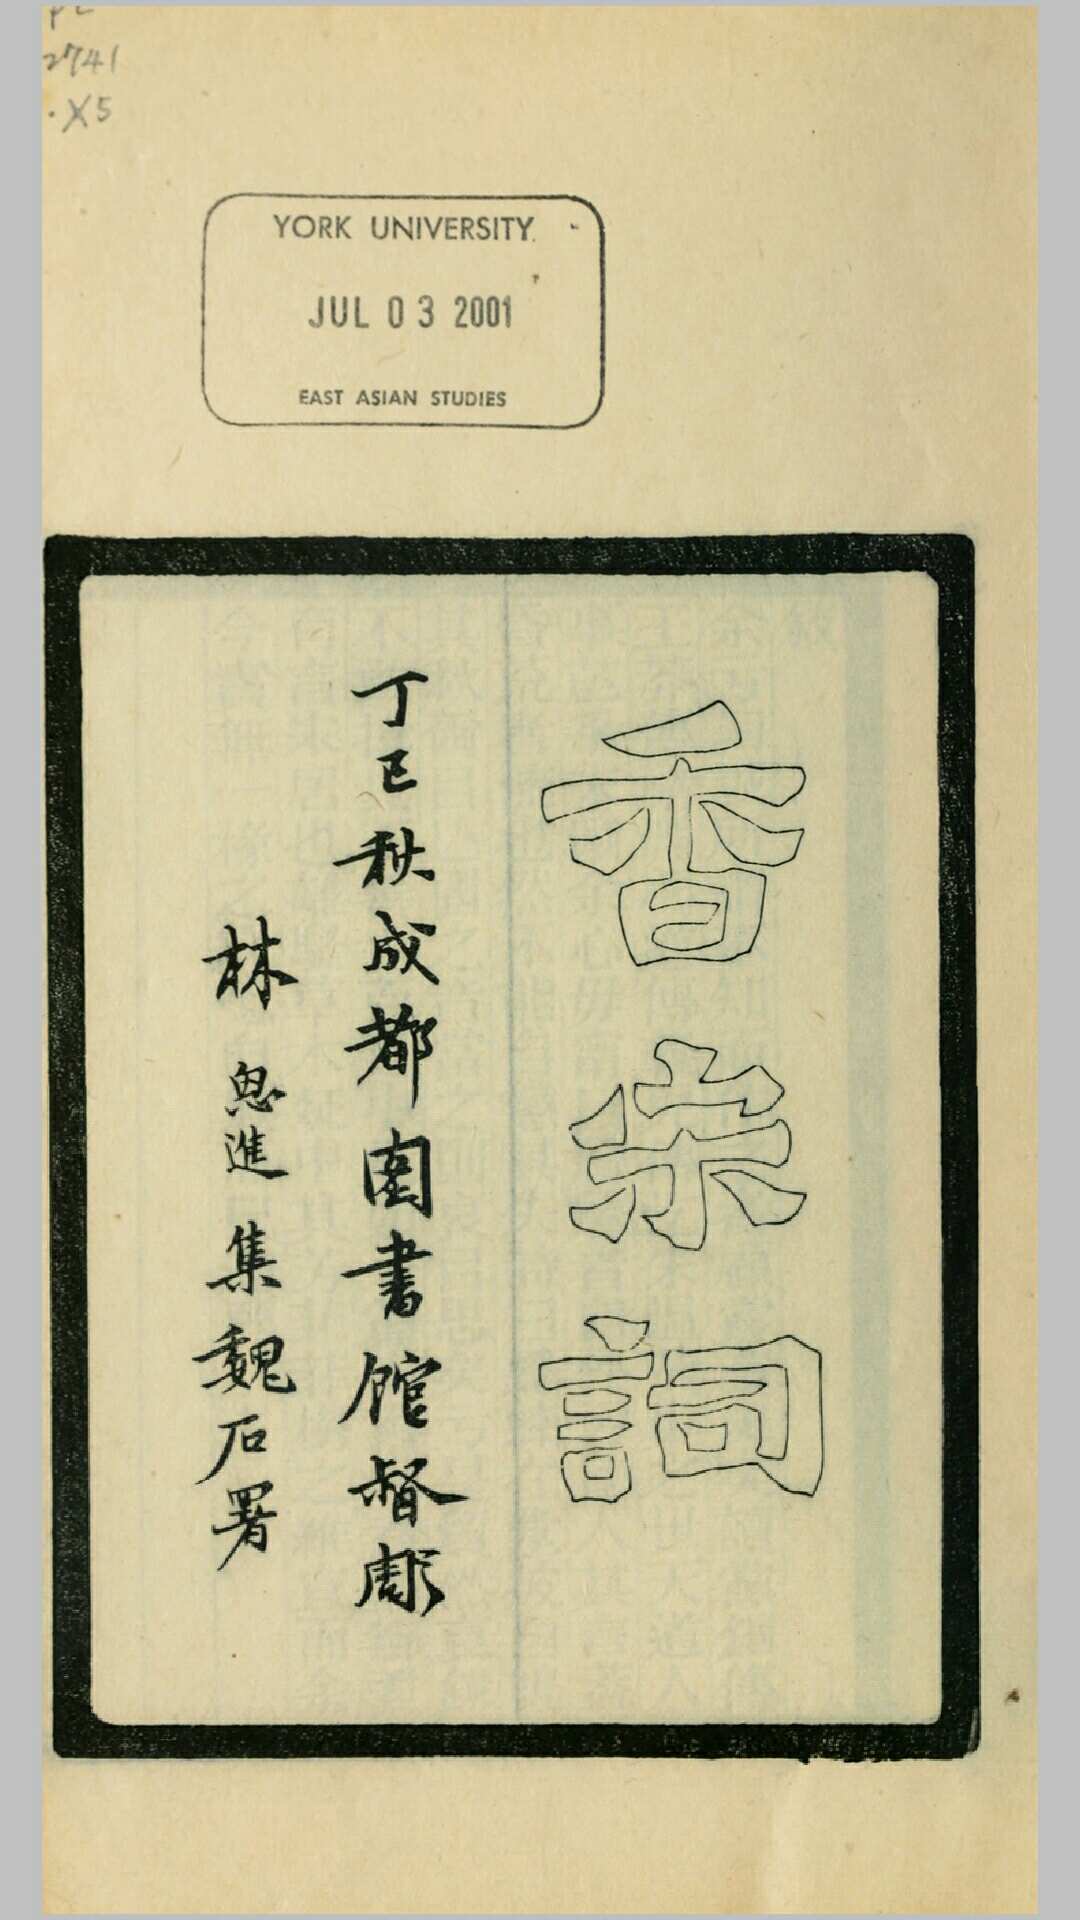 2741
.X5
YORK UNIVERSITY
JUL 03 2001
EAST ASIAN STUDIES
香宋詞
丁巳秋成都圖書館督彫
林思進集魏石署